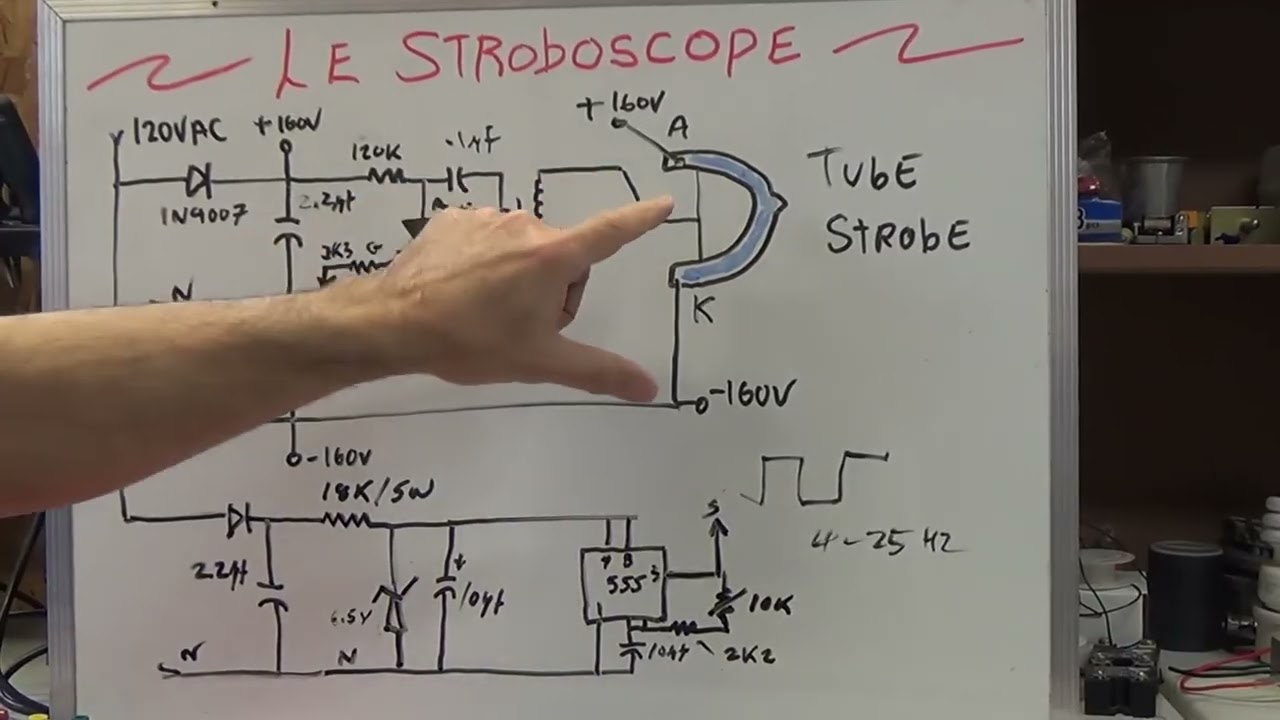 LE STROBOSCOPE
120VAC
+160V
120K
.1µF
+160V
A
1N4007
2.2µF
TUBE
STROBE
2K3
G
N
K
-160V
-160V
18K/5W
S
4-25 HZ
2.2µF
6.5V
+
10µF
4 8
555
3
1
10K
10µF
2K2
N
N